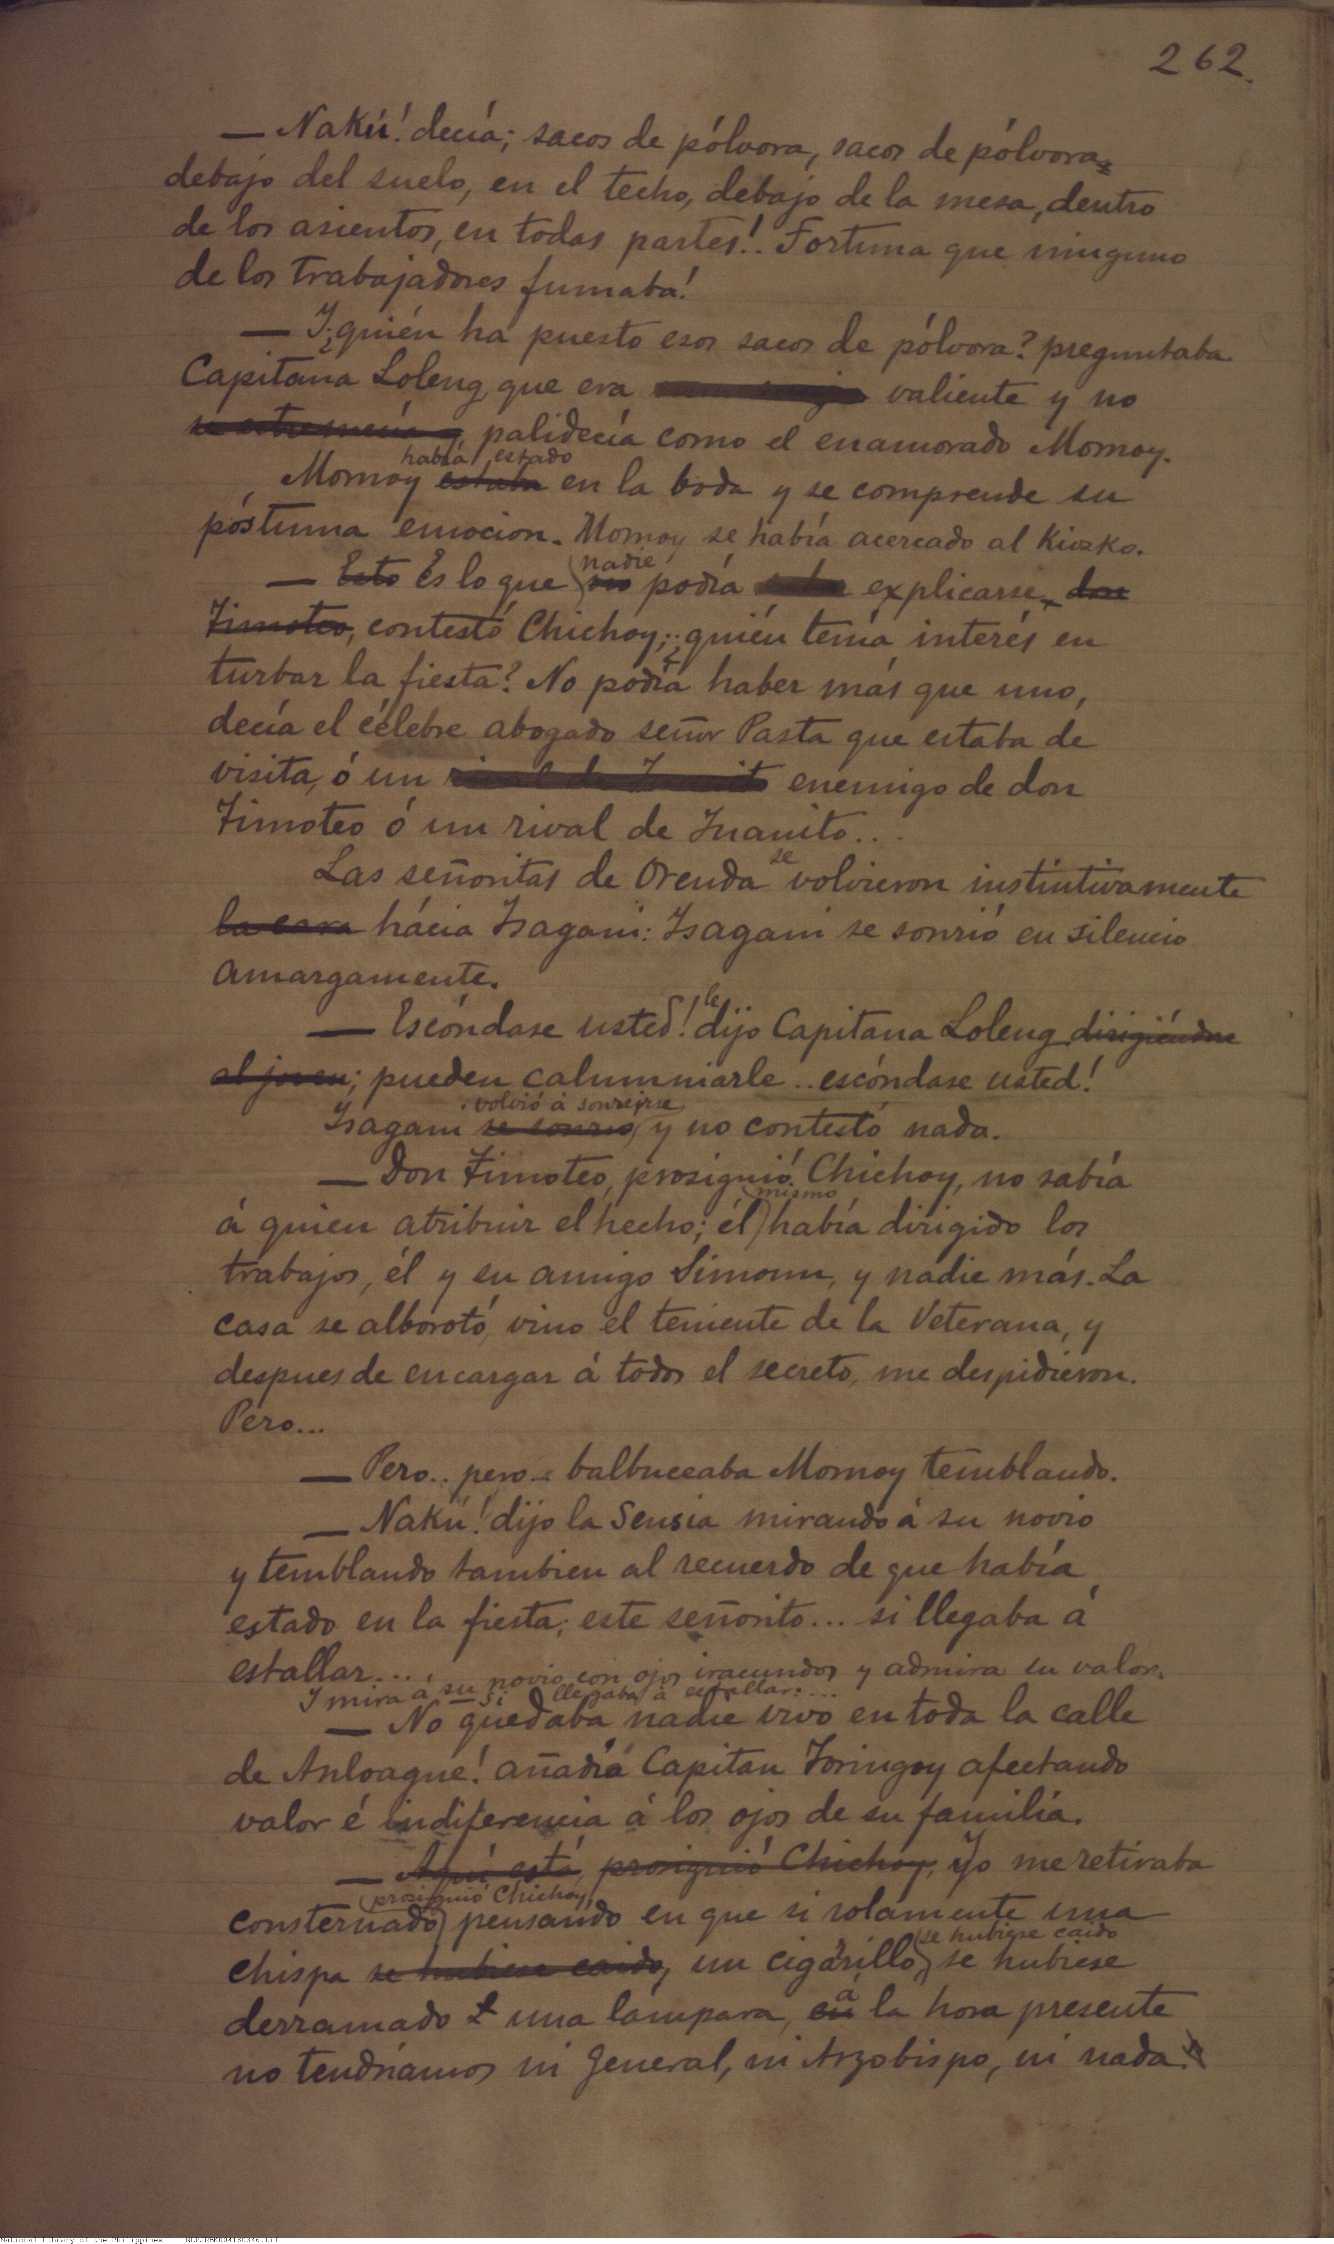 262.
— Nakú! decía; sacos de pólvora, sacos de pólvora
debajo del suelo, en el techo, debajo de la mesa, dentro
de los asientos, en todas partes!. Fortuna que ninguno
de los trabajadores fumaba!
— Y ¿quién ha puesto esos sacos de pólvora? preguntaba
Capitana Loleng que era valiente y no
se estremecía y, palidecía como el enamorado Momoy.
había estado
Momoy estaba en la boda y se comprende su
póstuma emocion. Momoy se había acercado al Kiozko.
nadie
— Esto Es lo que no podía explicarse, don
Timoteo, contestó Chichoy; ¿quién tenía interés en
turbar la fiesta? No podía haber más que uno,
decía el célebre abogado señor Pasta que estaba de
visita, ó un rival de Juanito enemigo de don
Timoteo ó un rival de Juanito...
se
Las señoritas de Orenda volvieron instintivamente
la cara hácia Isagani: Isagani se sonrió en silencio
amargamente.
le
— Escóndase usted! dijo Capitana Loleng dirigiéndose
al joven; pueden calumniarle.. escóndase usted!
volvió á sonreirse
Isagani se sonrió, y no contestó nada.
— Don Timoteo, prosiguió Chichoy, no sabía
mismo
á quien atribuir el hecho; él había dirigido los
trabajos, él y su amigo Simoun, y nadie más. La
casa se alborotó, vino el teniente de la Veterana, y
despues de encargar á todos el secreto, me despidieron.
Pero...
— Pero.. pero.. balbuceaba Momoy temblando.
— Nakú! dijo la Sensia mirando á su novio
y temblando tambien al recuerdo de que había
estado en la fiesta; este señorito... si llegaba á
estallar....
Y mira á su novio con ojos iracundos y admira su valor.
— Si llegaba á estallar....
— No quedaba nadie vivo en toda la calle
de Anloague! añadía Capitan Toringoy afectando
valor é indiferencia á los ojos de su familia.
— Aquí está, prosiguió Chichoy, Yo me retiraba
prosiguió Chichoy,
consternado pensando en que si solamente una
se hubiese caido
chispa se hubiese caido, un cigarillo, se hubiese
derramado una lámpara, en á la hora presente
no tendríamos ni General, ni Arzobispo, ni nada.